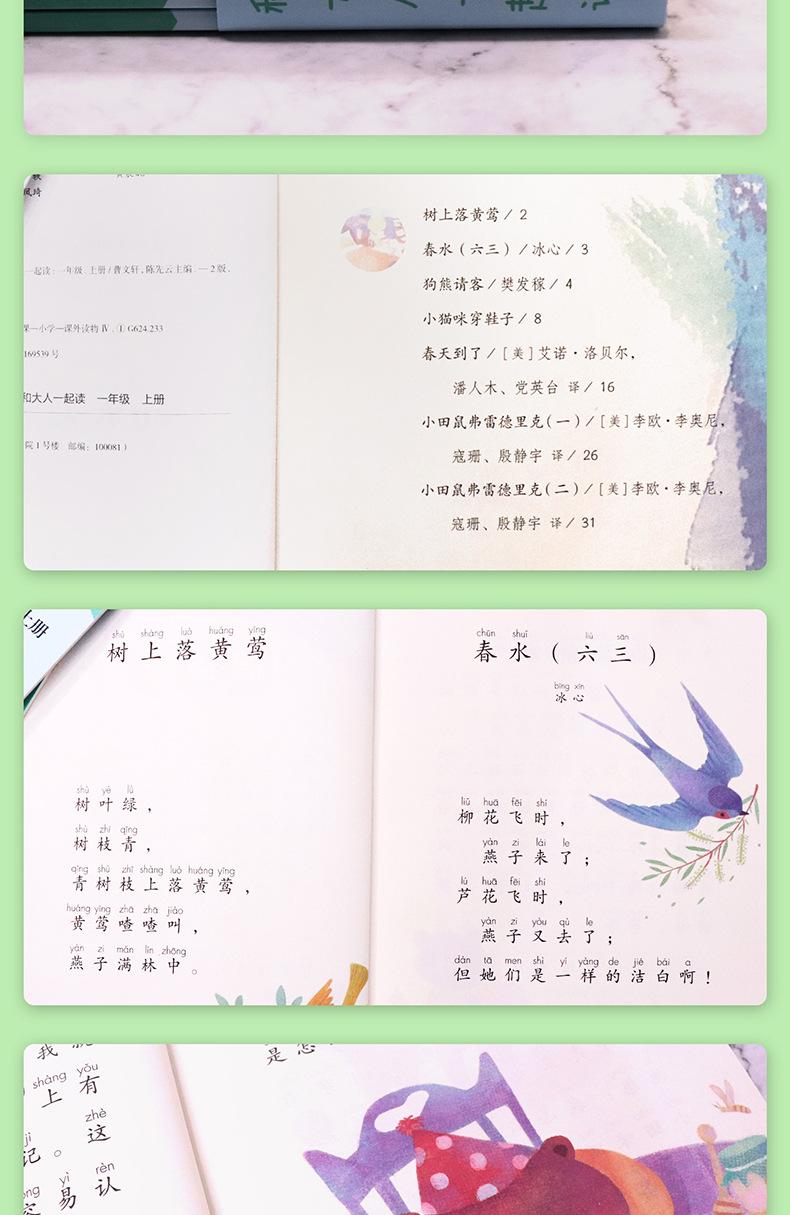 树上落黄莺 / 2
春水（六三）/ 冰心 / 3
狗熊请客 / 樊发稼 / 4
小猫咪穿鞋子 / 8
春天到了 / [美] 艾诺·洛贝尔，
潘人木、党英台 译 / 16
小田鼠弗雷德里克(一) / [美]李欧·李奥尼，
寇珊、殷静宇 译 / 26
小田鼠弗雷德里克(二) / [美]李欧·李奥尼，
寇珊、殷静宇 译 / 31
一起读 : 一年级. 上册 / 曹文轩, 陈先云主编. — 2版.
课—小学—课外读物 Ⅳ. ① G624.233
169539 号
和大人一起读 一年级 上册
院1号楼 邮编：100081）
上册
shù shàng luò huáng yīng
树上落黄莺
shù yè lǜ
树叶绿，
shù zhī qīng
树枝青，
qīng shù zhī shàng luò huáng yīng
青树枝上落黄莺，
huáng yīng zhā zhā jiào
黄莺喳喳叫，
yàn zi mǎn lín zhōng
燕子满林中。
chūn shuǐ liù sān
春水(六三)
bīng xīn
冰心
liǔ huā fēi shí
柳花飞时，
yàn zi lái le
燕子来了；
lú huā fēi shí
芦花飞时，
yàn zi yòu qù le
燕子又去了；
dàn tā men shì yí yàng de jié bái a
但她们是一样的洁白啊！
shàng yǒu
上有
zhè
记。这
yì rèn
容易认
是怎